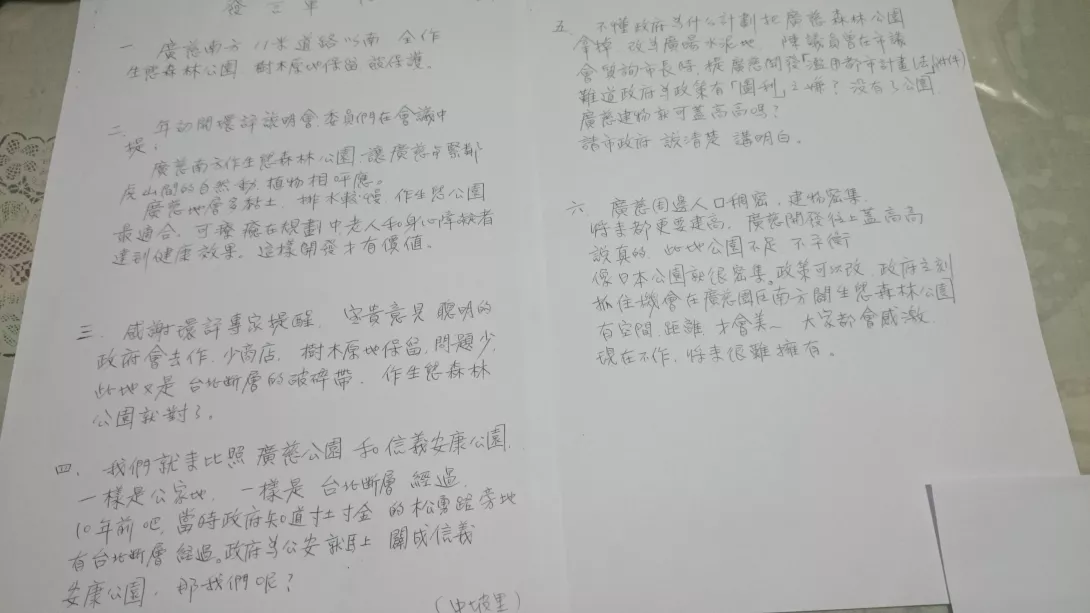 發言單
一 廣慈南方 11米道路以南 全作
生態森林公園 樹木原地保留 設保護。
二、年初開環評說明會,委員們在會議中
提:
廣慈南方作生態森林公園,讓廣慈
山間的自然動、植物相呼應。
廣慈地層多黏土,排水較慢,作生態公園
最適合,可療癒在規劃中老人和身心障礙者
達到健康效果。這樣開發才有價值。
三、感謝環評專家提醒,寶貴意見 聰明的
政府會去作,少商店,樹木原地保留,問題少,
此地又是 台北斷層的破碎帶,作生態森林
公園就對了。
四、我們就來比照 廣慈公園 和信義安康公園,
一樣是公家地,一樣是 台北斷層 經過,
10年前吧,當時政府知道寸土寸金 的松勇路旁地
有台北斷層 經過。政府為公安 就馬上 關成信義
安康公園,那我們呢?
(中坡里)
五、不懂政府為什么計劃把廣慈森林公園
拿掉 改為廣場水泥地,陳議員曾在市議
會質詢市長時,提廣慈開發「濫用都市計畫法」(附件)
難道政府為政策有「圖利」之嫌?沒有了公園
廣慈建物就可蓋高高嗎?
請市政府 說清楚 講明白。
六、廣慈周邊人口稠密,建物密集,
將來都更要建高,廣慈開發往上蓋高高
說真的,此地公園不足 不平衡
像日本公園就很密集。政策可以改,政府立刻
抓住機會在廣慈園區南方開生態森林公園
有空間 距離 才會美~ 大家都會感激
現在不作,將來很難擁有。